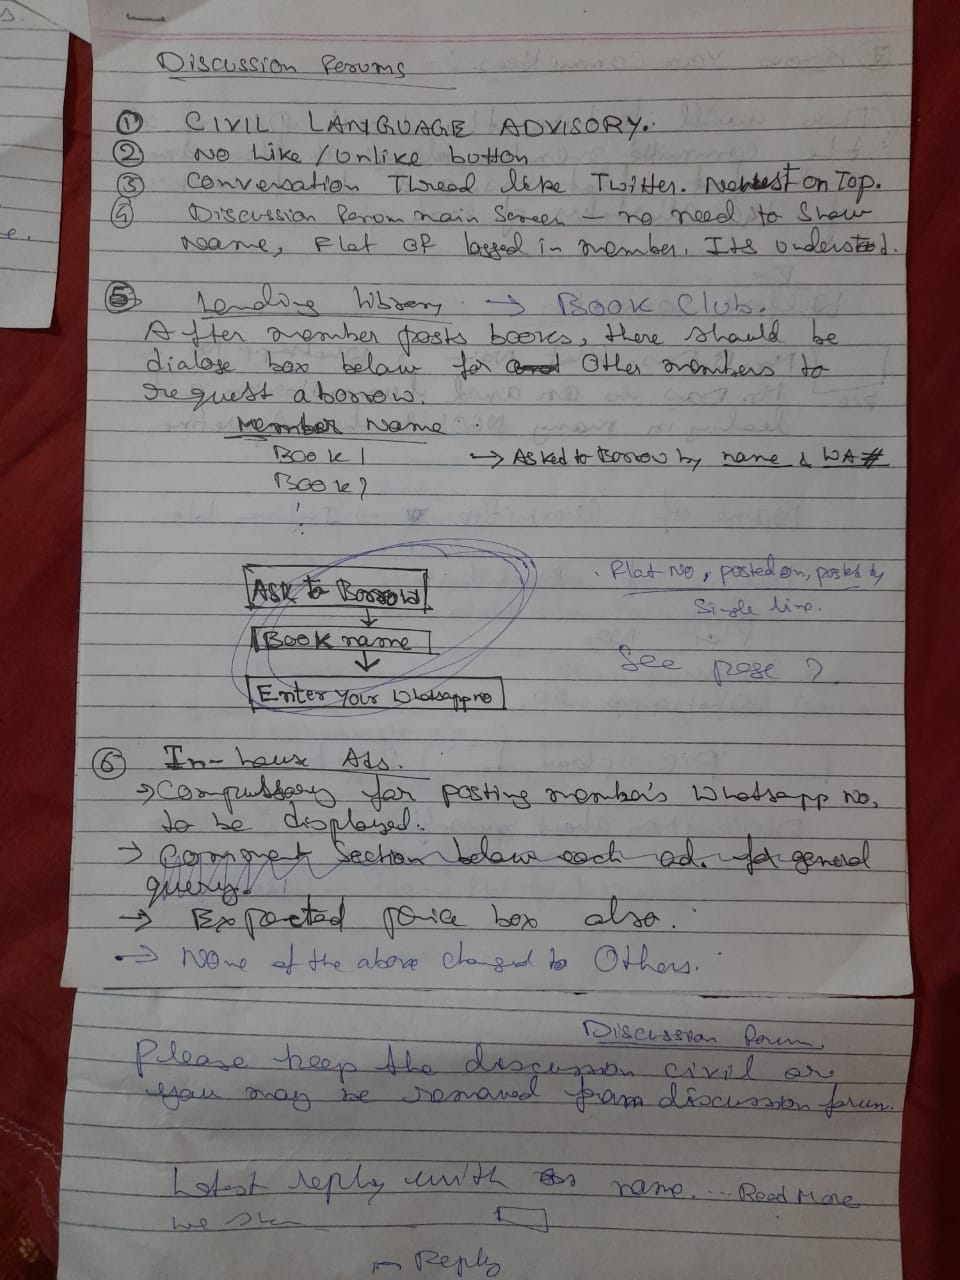 Discussion Forums
① CIVIL LANGUAGE ADVISORY.
② No Like / Unlike button
③ Conversation Thread like Twitter. Newest on Top.
④ Discussion Forum main Screen – no need to show
Name, Flat of logged in member. Its understood.
⑤ Lending library → Book Club.
After member posts books, there should be
dialoge box below for Other members to
request a borrow.
Member Name
Book 1 → Asked to Borrow by name & WA #
Book 2
Ask to Borrow
Flat No, posted on, posted by
Single line.
Book name
See page 2.
Enter your Whatsapp no
⑥ In-house Ads.
→ Compulsary for posting member's Whatsapp no,
to be displayed.
→ Comment Section below each ad. for general
query.
→ Expected price box also.
→ None of the above changed to Others.
Discussion Forum
Please keep the discussion civil or
you may be removed from discussion forum.
Latest reply with name.... Read More
we
Reply